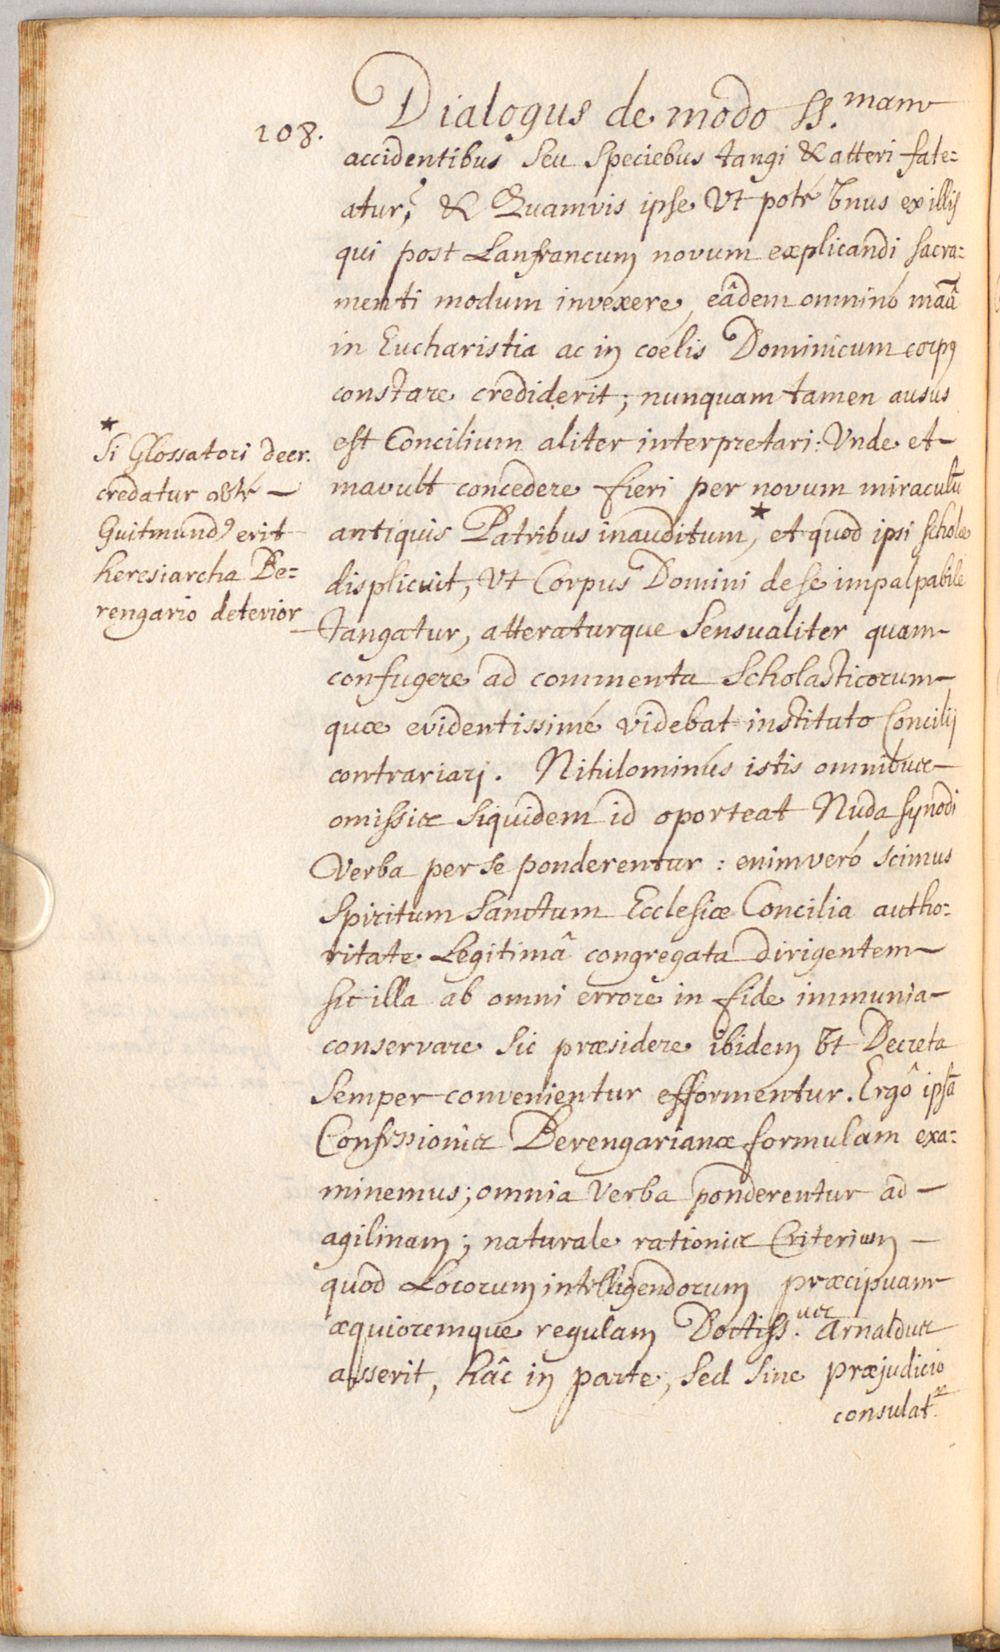 108.
Dialogus de modo SS.mam
accidentibus seu speciebus tangi & atteri fate=
atur; & Quamvis ipse Vt poté Vnus ex illis
qui post Lanfrancum novum explicandi sacra=
menti modum invexere, eâdem omninó
in Eucharistia ac in coelis Dominicum corp9
constare crediderit; nunquam tamen ausus
est Concilium aliter interpretari: Vnde et
mavult concedere fieri per novum miraculũ
antiquis Patribus inauditum,* et quod ipsi scholæ
displicuit, Vt Corpus Domini de se impalpabile
tangatur, atteraturque sensualiter quam
confugere ad commenta Scholasticorum
quæ evidentissimé videbat instituto Concilij
contrariari. Nihilominús istis omnibus
omissis siquidem id oporteat Nuda synodi
Verba per se ponderentur: enimveró scimus
Spiritum Sanctum Ecclesiæ Concilia autho=
ritate Legitimâ congregata dirigentem
sic illa ab omni errore in fide immunia
conservare sic præsidere ibidem Vt Decreta
semper convenientur efformentur. Ergô ipsã
Confessionis Berengarianæ formulam exa=
minemus; omnia Verba ponderentur ad
agilinam; naturale rationis Criterium
quod Locorum intelligendorum præcipuam
æquioremque regulam Doctiss.us Arnaldus
asserit, hâc in parte, sed sine præjudicio
consulat.r
*
Si Glossatori decr.
credatur
Guitmund9 erit
heresiarcha Be=
rengario deterior